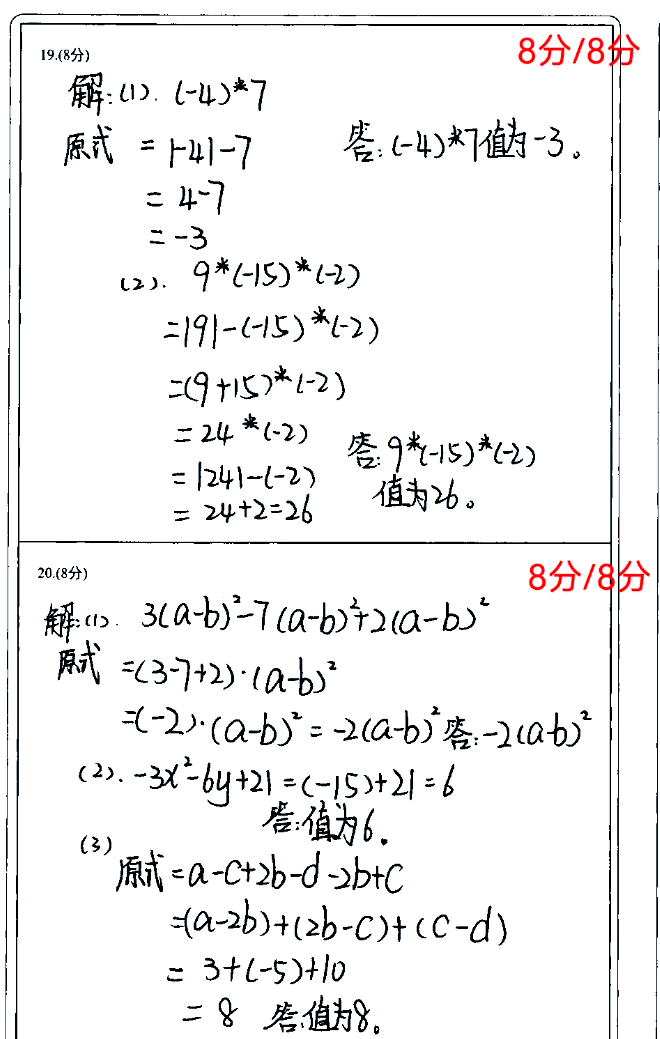 19.(8分)
8分/8分
解:(1). (-4)*7
原式 = |-4|-7
答:(-4)*7值为-3。
= 4-7
= -3
(2). 9*(-15)*(-2)
=|9|-(-15)*(-2)
=(9+15)*(-2)
=24*(-2)
=|24|-(-2)
= 24+2=26
答:9*(-15)*(-2)
值为26。
20.(8分)
8分/8分
解:(1). 3(a-b)²-7(a-b)²+2(a-b)²
原式 =(3-7+2)·(a-b)²
=(-2)·(a-b)²=-2(a-b)² 答:-2(a-b)²
(2). -3x²-6y+21=(-15)+21=6
答:值为6.
(3)
原式=a-c+2b-d-2b+c
=(a-2b)+(2b-c)+(c-d)
= 3+(-5)+10
= 8 答:值为8。